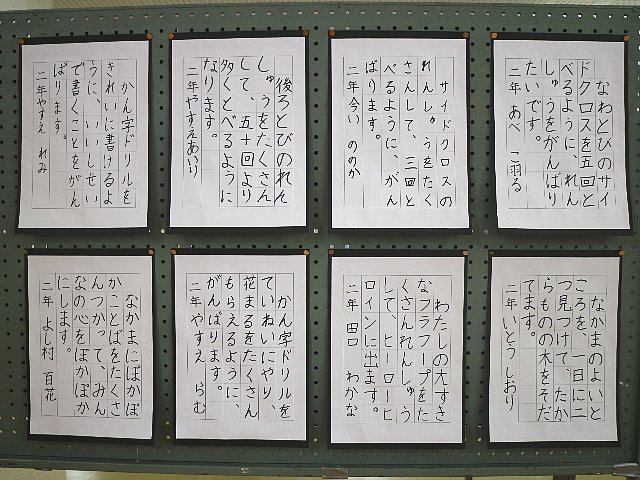 なわとびのサイ
ドクロスを五回と
べるように、れん
しゅうをがんばり
たいです。
二年 あべ こ羽る
サイドクロスの
れんしゅうをたく
さんして、三回と
べるように、がん
ばります。
二年 今い ののか
後ろとびのれん
しゅうをたくさん
して、五十回より
多くとべるように
なります。
二年 やすえ あいり
かん字ドリルを
きれいに書けるよ
うに、いいしせい
で書くことをがん
ばります。
二年 やすえ れみ
なかまのよいと
ころを、一日に二
つ見つけて、たか
らものの木をそだ
てます。
二年 いとう しおり
わたしの大すき
なフラフープをた
くさんれんしゅう
して、ヒーローヒ
ロインに出ます。
二年 田口 わかな
かん字ドリルを
ていねいにやり、
花まるをたくさん
もらえるように、
がんばります。
二年 やすえ らむ
なかまにぽかぽ
かことばをたくさ
んつかって、みん
なの心をぽかぽか
にします。
二年 よし村 百花